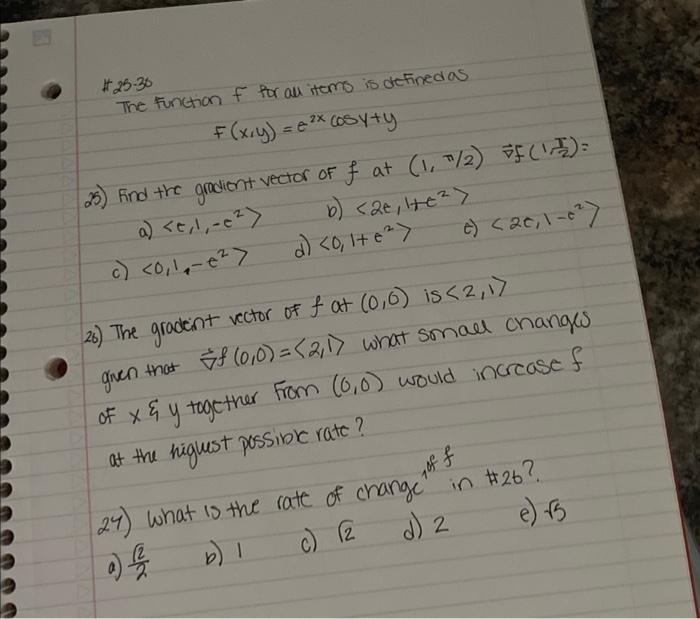 #25-30
The function f for all items is defined as
F(x,y) = e^2x cosy+y
25) Find the gradient vector of f at (1, π/2) ∇f(1, π/2) =
a) <e, 1, -e²> b) <2e, 1+e²>
c) <0, 1, -e²> d) <0, 1+e²> e) <2e, 1-e²>
26) The gradeint vector of f at (0,0) is <2,1>
given that ∇f(0,0) = <2,1> what small changes
of x & y together from (0,0) would increase f
at the highest possible rate?
27) what is the rate of change of f in #26?
a) √2/2 b) 1 c) √2 d) 2 e) √5